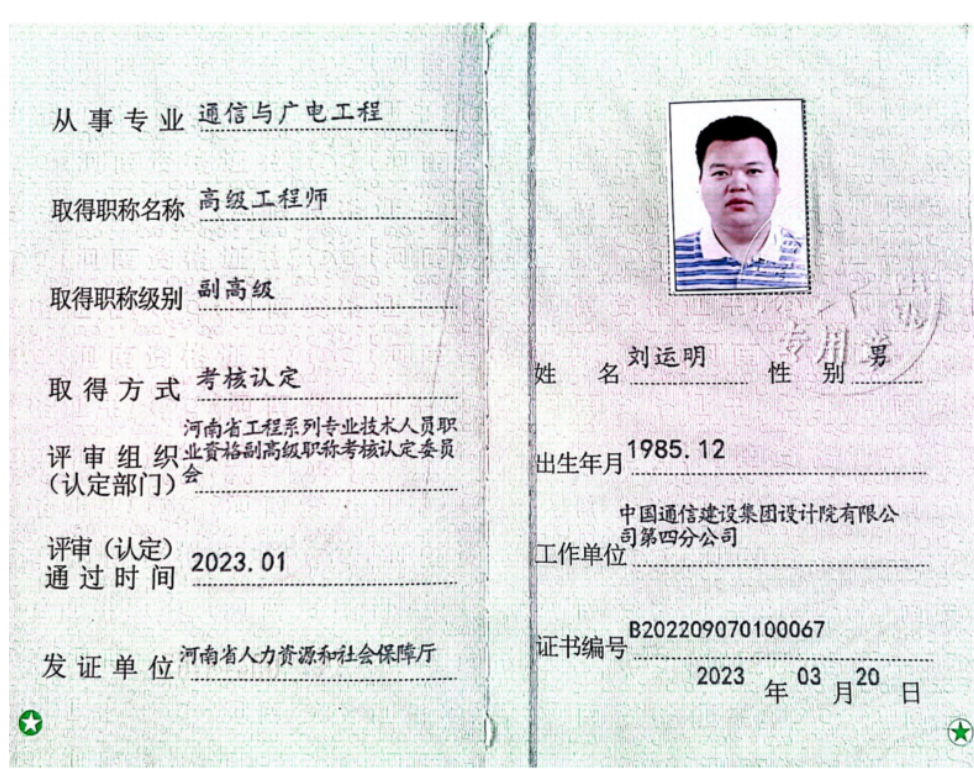 从事专业 通信与广电工程
取得职称名称 高级工程师
取得职称级别 副高级
取得方式 考核认定
评审组织(认定部门) 河南省工程系列专业技术人员职
业资格副高级职称考核认定委员
会
评审(认定)
通过时间 2023.01
发证单位 河南省人力资源和社会保障厅
专用章
姓名 刘运明 性别 男
出生年月 1985.12
工作单位 中国通信建设集团设计院有限公
司第四分公司
证书编号 B202209070100067
2023 年 03 月 20 日